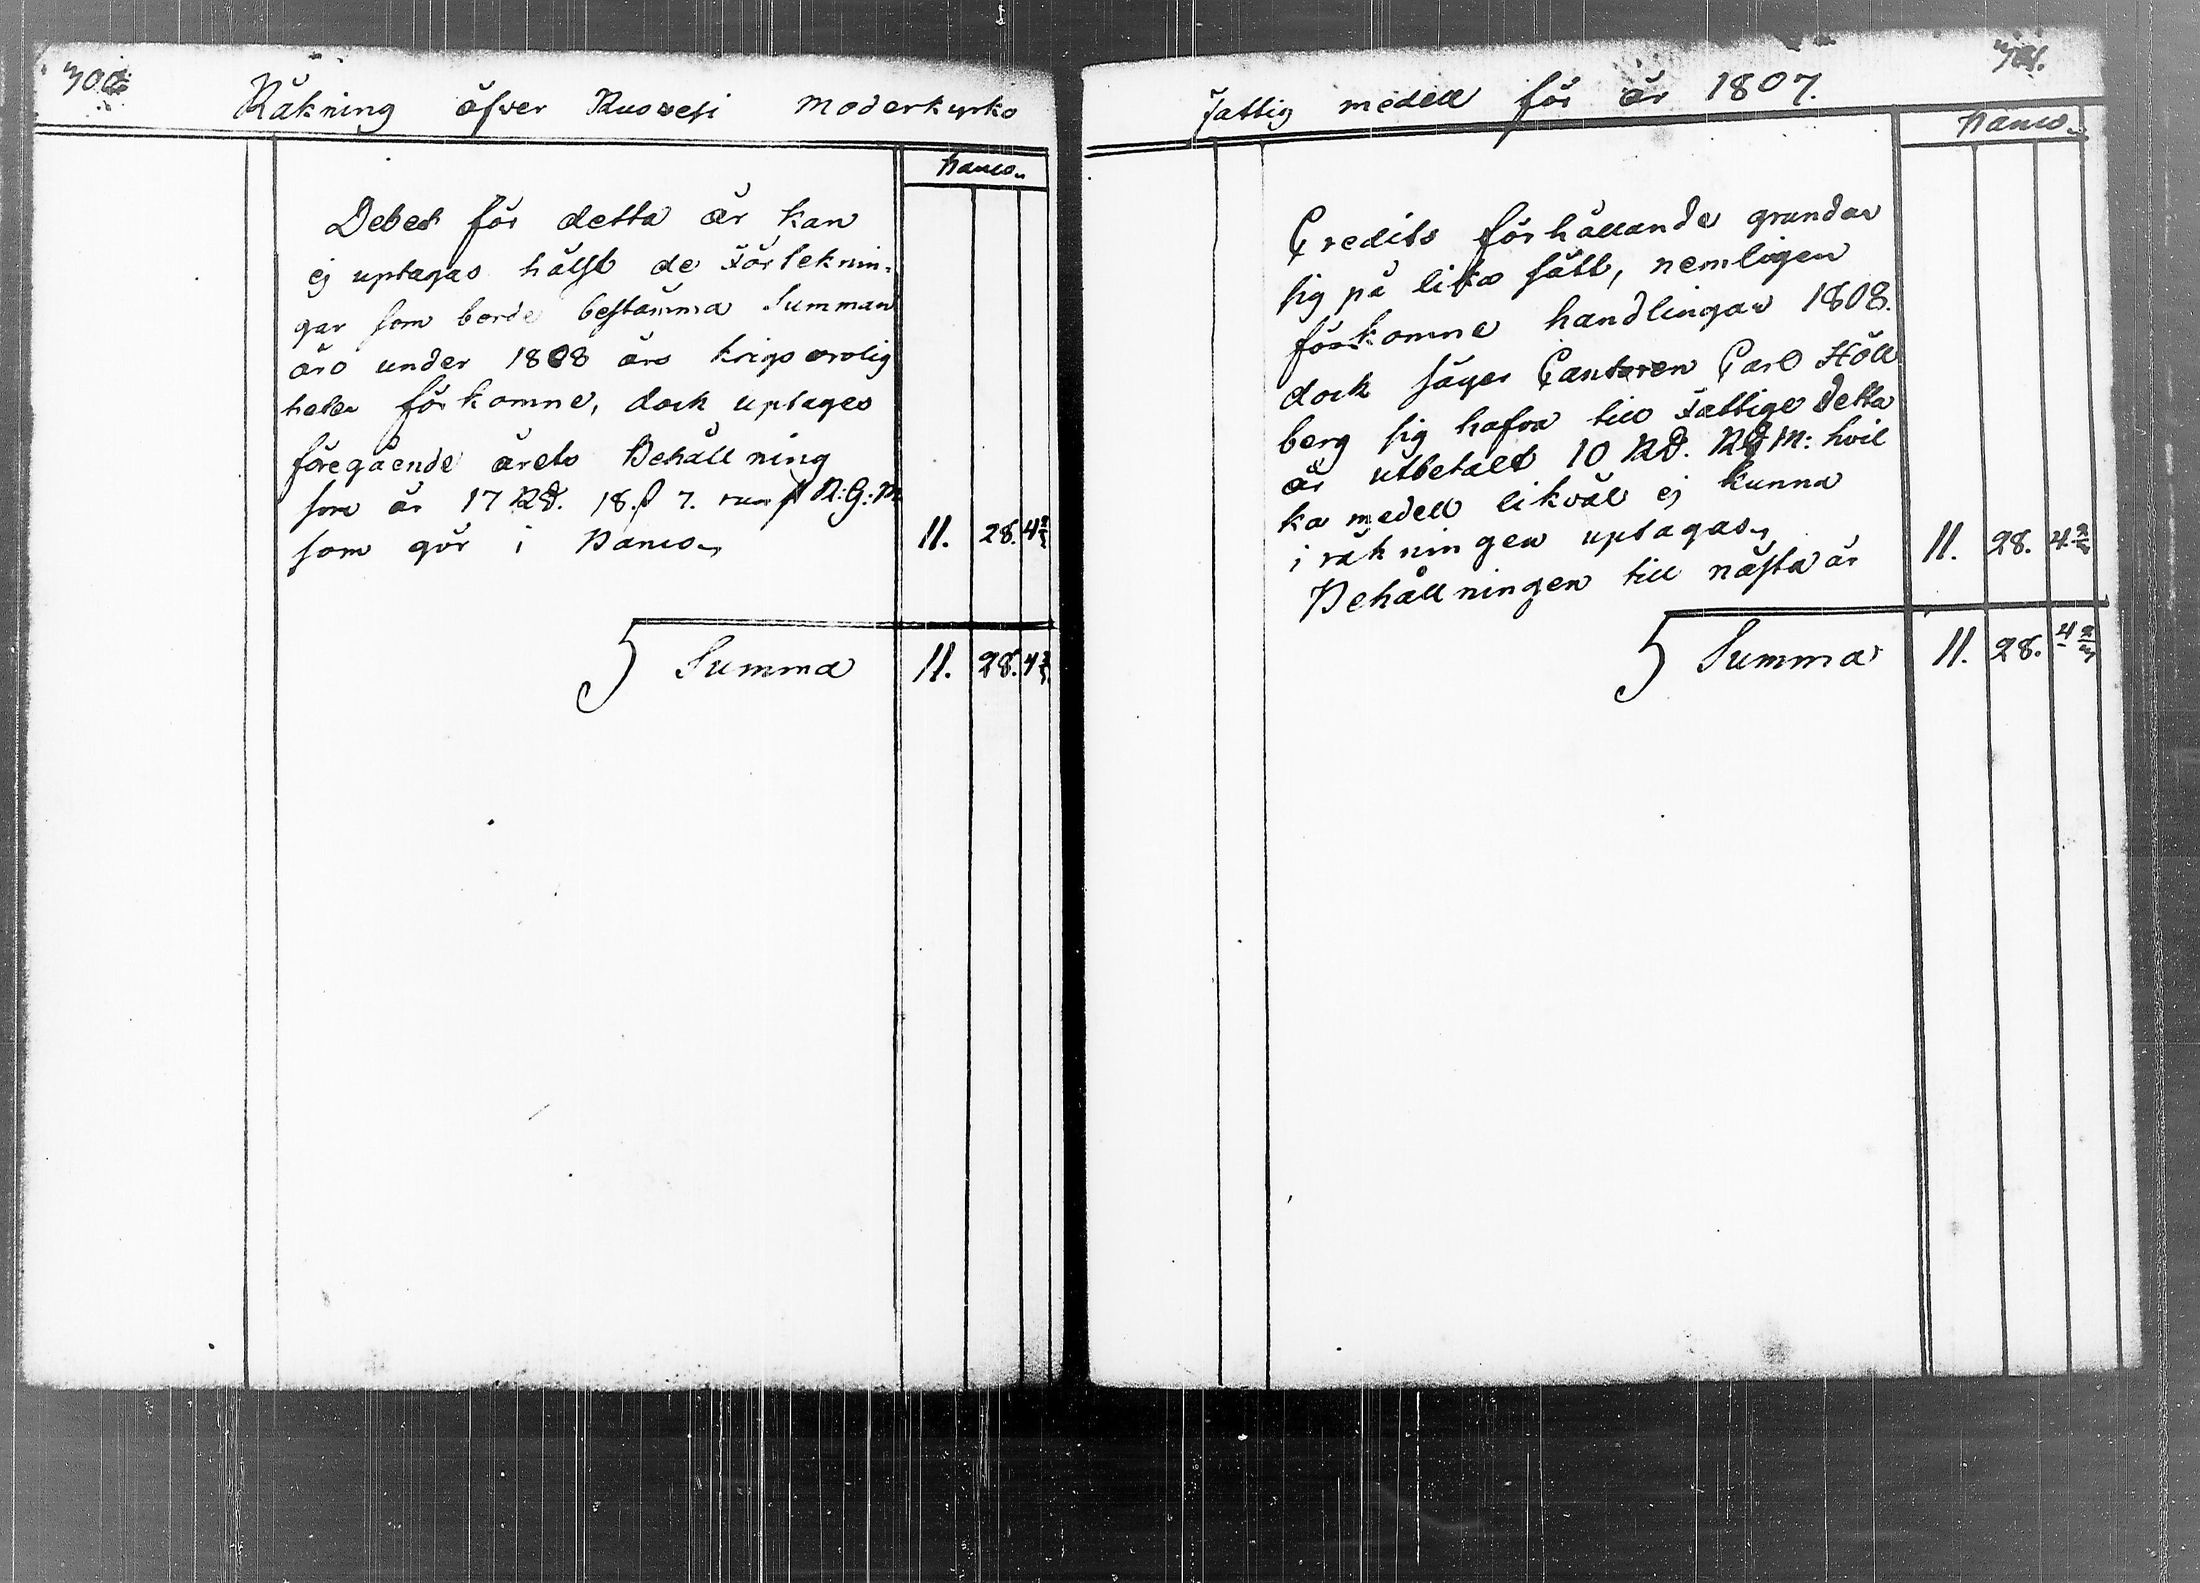 Räkning öfver Ruovesi moderkyrko
Banco.
Debet för detta år kan
ej uptagas hälst de Förteknin-
gar som borde bestämma Summan
äro under 1808 års krigs orolig
heter förkomne, dock uptages
föregående årets Behållning
som är 17 Rd. 18 ß 7. R:G:M
som gör i Banco 11. 28. 4 2/3
Summa 11. 28. 4 2/3
Fattig medell för år 1807.
Banco.
Credits förhållande grundar
sig på lika sätt, nemligen
förkomne handlingar 1808.
dock säger Cantoren Carl Höll
berg sig hafva till Fattige detta
år utbetalt 10 Rd. RGM: hvil
ka medell likväl ej kunna
i räkningen uptagas,
Behållningen till nästa år 11. 28. 4 2/3
Summa 11. 28. 4 2/3